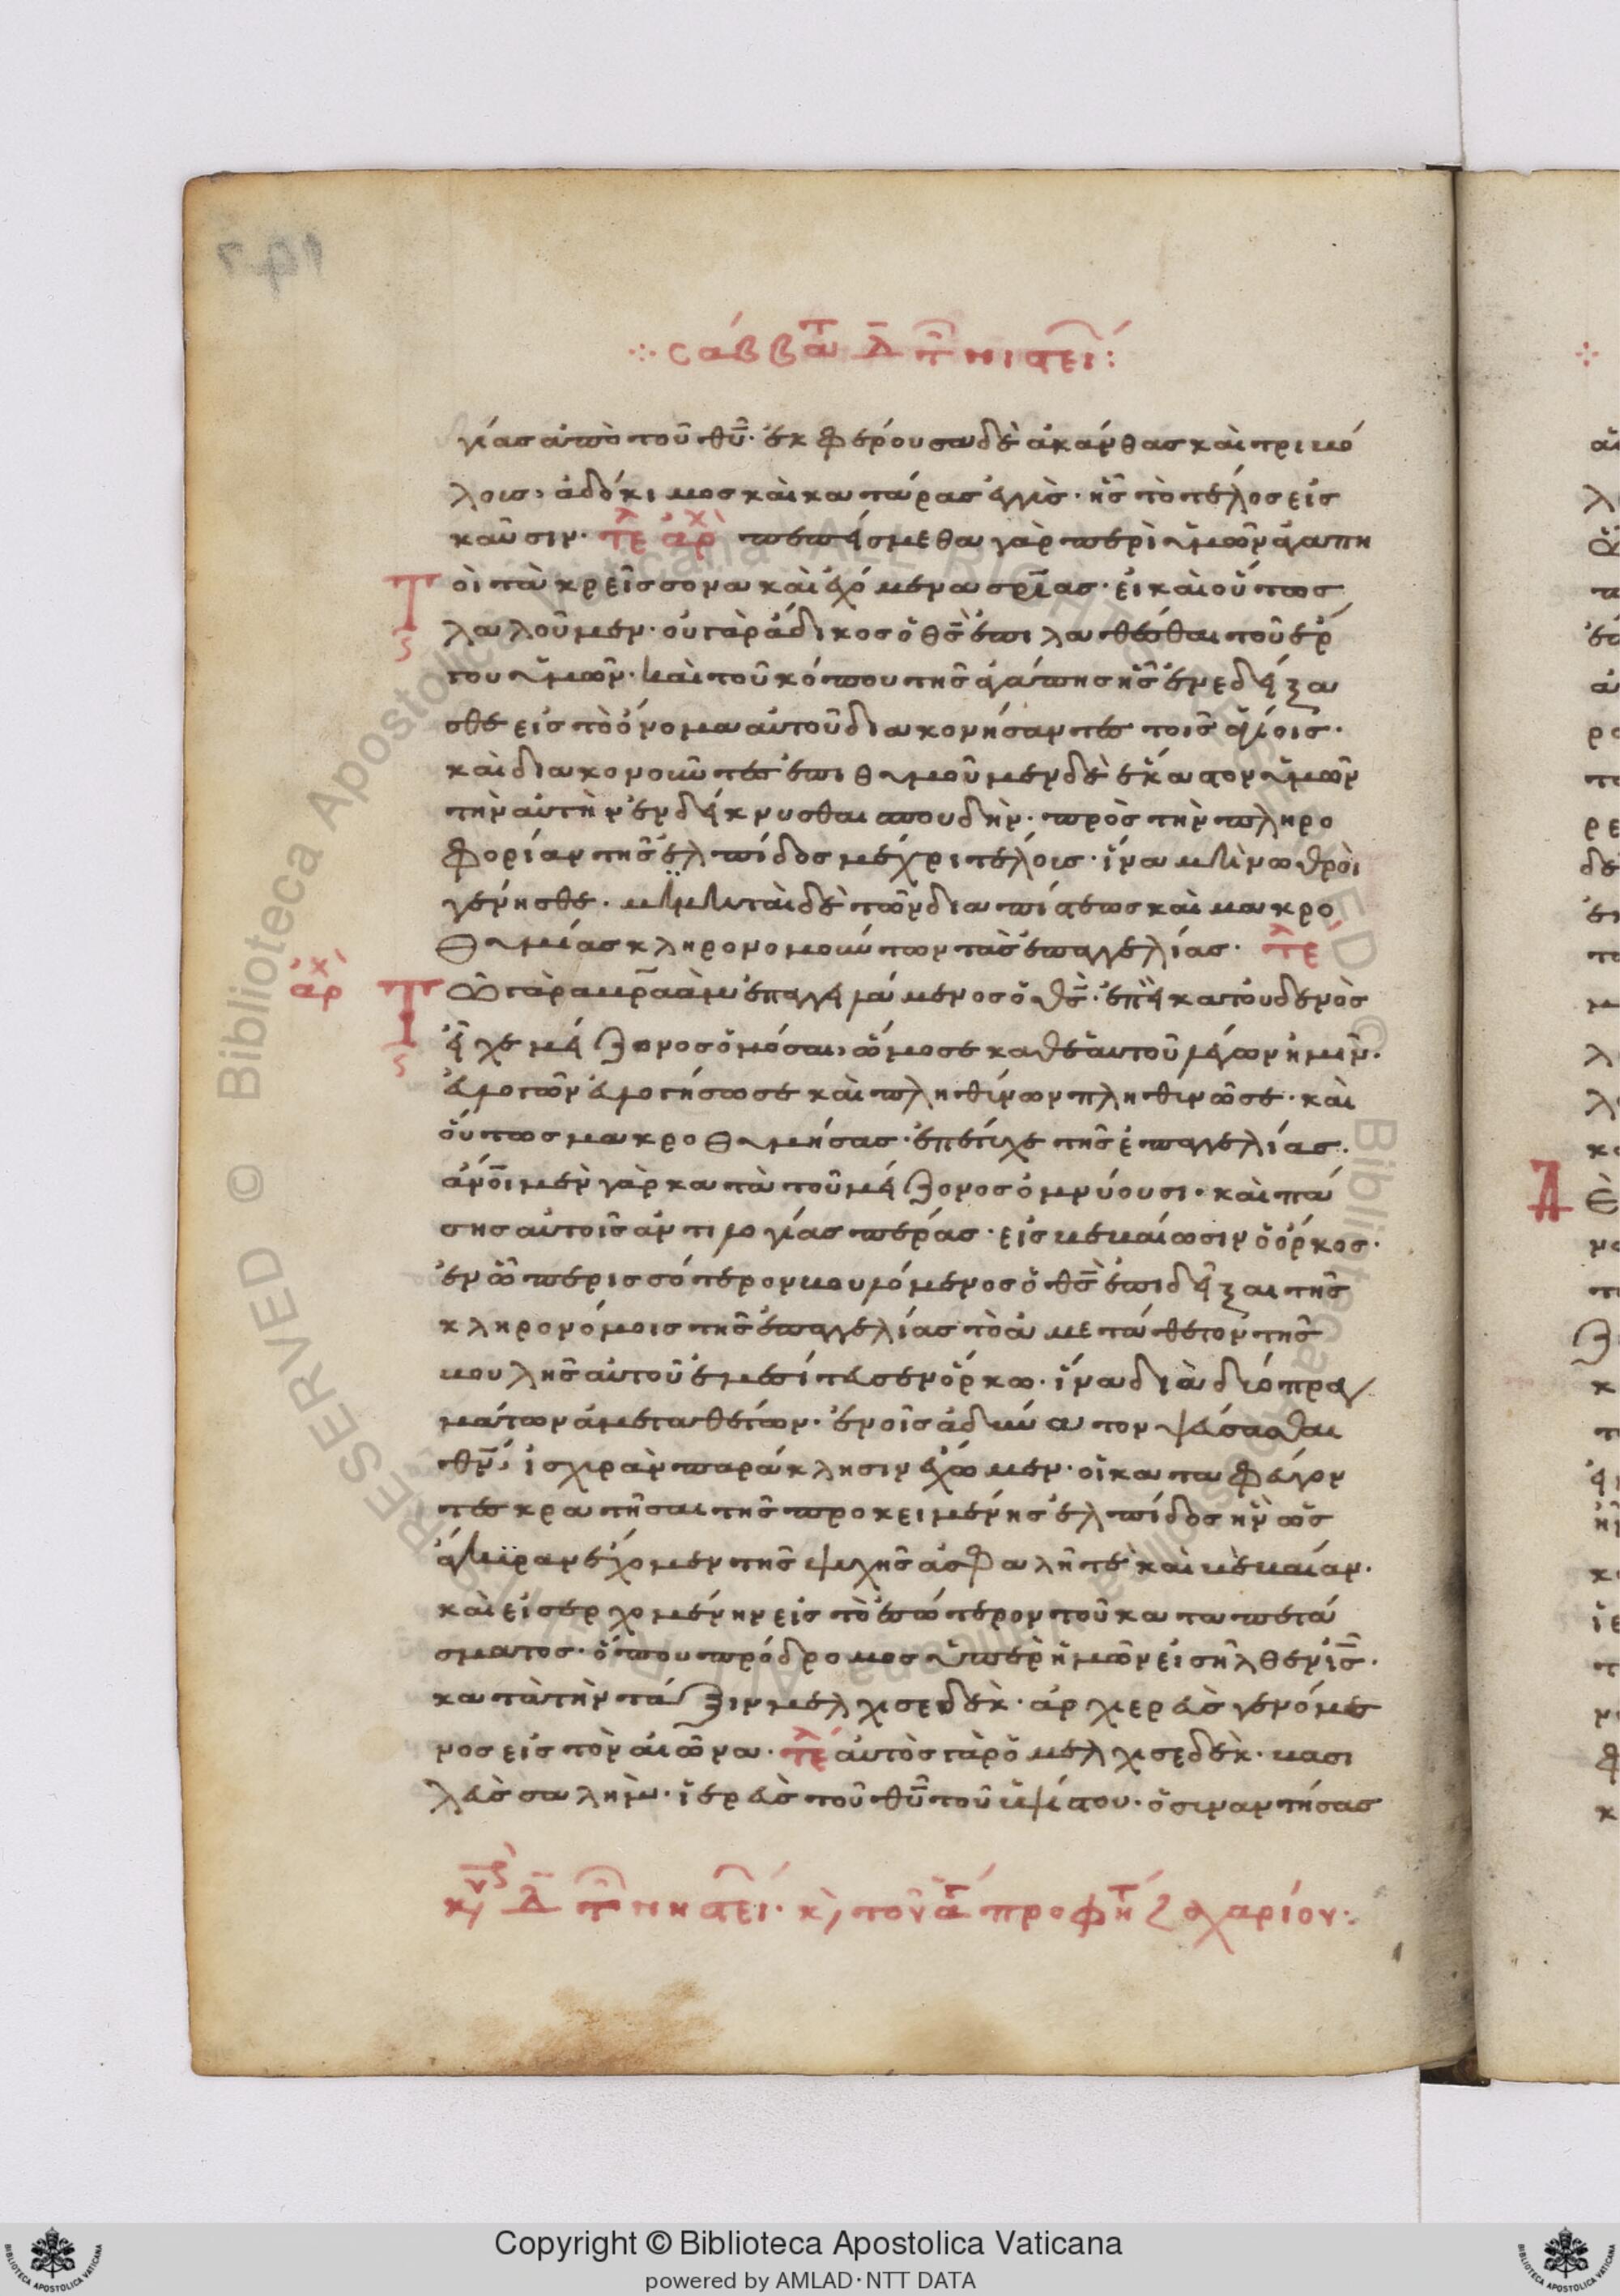 σάββα τ δ τ νηστει:
γίας ἀπὸ τοῦ θυ· ἐκφέρουσα δὲ ἀκάνθας καὶ τριβό
λους, ἀδόκιμος καὶ κατάρας ἐγγὺς· ἧς τὸ τέλος εἰς
καῦσιν· τε αρχ πεπείσμεθα γὰρ περὶ ὑμῶν ἀγαπη
τοὶ τὰ κρείσσονα καὶ ἐχόμενα σριας· εἰ καὶ οὕτως
λαλοῦμεν· οὐ γὰρ ἄδικος ὁ θς ἐπιλαθέσθαι τοῦ ἔρ
του ὑμῶν· καὶ τοῦ κόπου τῆς ἀγάπης ἧς ἐνεδείξα
σθε εἰς τὸ ὄνομα αὐτοῦ διακονήσαντες τοῖς ἁγίοις·
καὶ διακονοῦντες ἐπιθυμοῦμεν δὲ ἕκαστον ὑμῶν
τὴν αὐτὴν ἐνδείκνυσθαι σπουδὴν· πρὸς τὴν πληρο
φορίαν τῆς ἐλπίδος μέχρι τέλους· ἵνα μὴ νωθροὶ
γένησθε· μιμηταὶ δὲ τῶν διὰ πίστεως καὶ μακρο
θυμίας κληρονομούντων τὰς ἐπαγγελίας· τε
αρχ Τῶ γὰρ αβρααμ ἐπαγγειλάμενος ὁ θς· ἐπεὶ κατ οὐδενὸς
εἶχε μείζονος ὀμόσαι, ὤμοσε καθ ἑαυτοῦ λέγων ἠ μὴν·
εὐλογῶν εὐλογήσω σε καὶ πληθύνων πληθυνῶ σε· καὶ
οὕτως μακροθυμήσας· ἐπέτυχε τῆς ἐπαγγελίας·
ἀνοι μὲν γὰρ κατὰ τοῦ μείζονος ὀμνύουσι· καὶ πά
σης αὐτοῖς ἀντιλογίας πέρας· εἰς βεβαίωσιν ὁ ὅρκος·
ἐν ᾧ περισσότερον βουλόμενος ὁ θς ἐπιδεῖξαι τῆς
κληρονόμοις τῆς ἐπαγγελίας τὸ ἀμετάθετον τῆς
βουλῆς αὐτοῦ ἐμεσίτευσεν ὅρκω· ἵνα διὰ δύο πρα
μάτων ἀμεταθέτων· ἐν οἷς ἀδύνατον ψεύσασθαι
θν, ἰσχυρὰν παράκλησιν ἔχωμεν· οἱ καταφυγόν
τες κρατῆσαι τῆς προκειμένης ἐλπίδος ἣν ὡς
ἄγκυραν ἔχομεν τῆς ψυχῆς ἀσφαλῆ τε καὶ βεβαίαν·
καὶ εἰσερχομένην εἰς τὸ ἐσώτερον τοῦ καταπετά
σματος· ὅπου πρόδρομος ὑπὲρ ἡμῶν εἰσῆλθεν ις·
κατὰ τὴν τάξιν μελχισεδὲκ· ἀρχιερεὺς γενόμε
νος εἰς τὸν αἰῶνα· τε αὐτὸς γὰρ ὁ μελχισεδὲκ· βασι
λεὺς σαλὴμ· ἱερεὺς τοῦ θυ τοῦ ὑψίστου· ὁ συναντήσας
κυ δ τ νηστει· κ, τοῦ α προφητ ζαχαρίου:
Copyright © Biblioteca Apostolica Vaticana
powered by AMLAD·NTT DATA